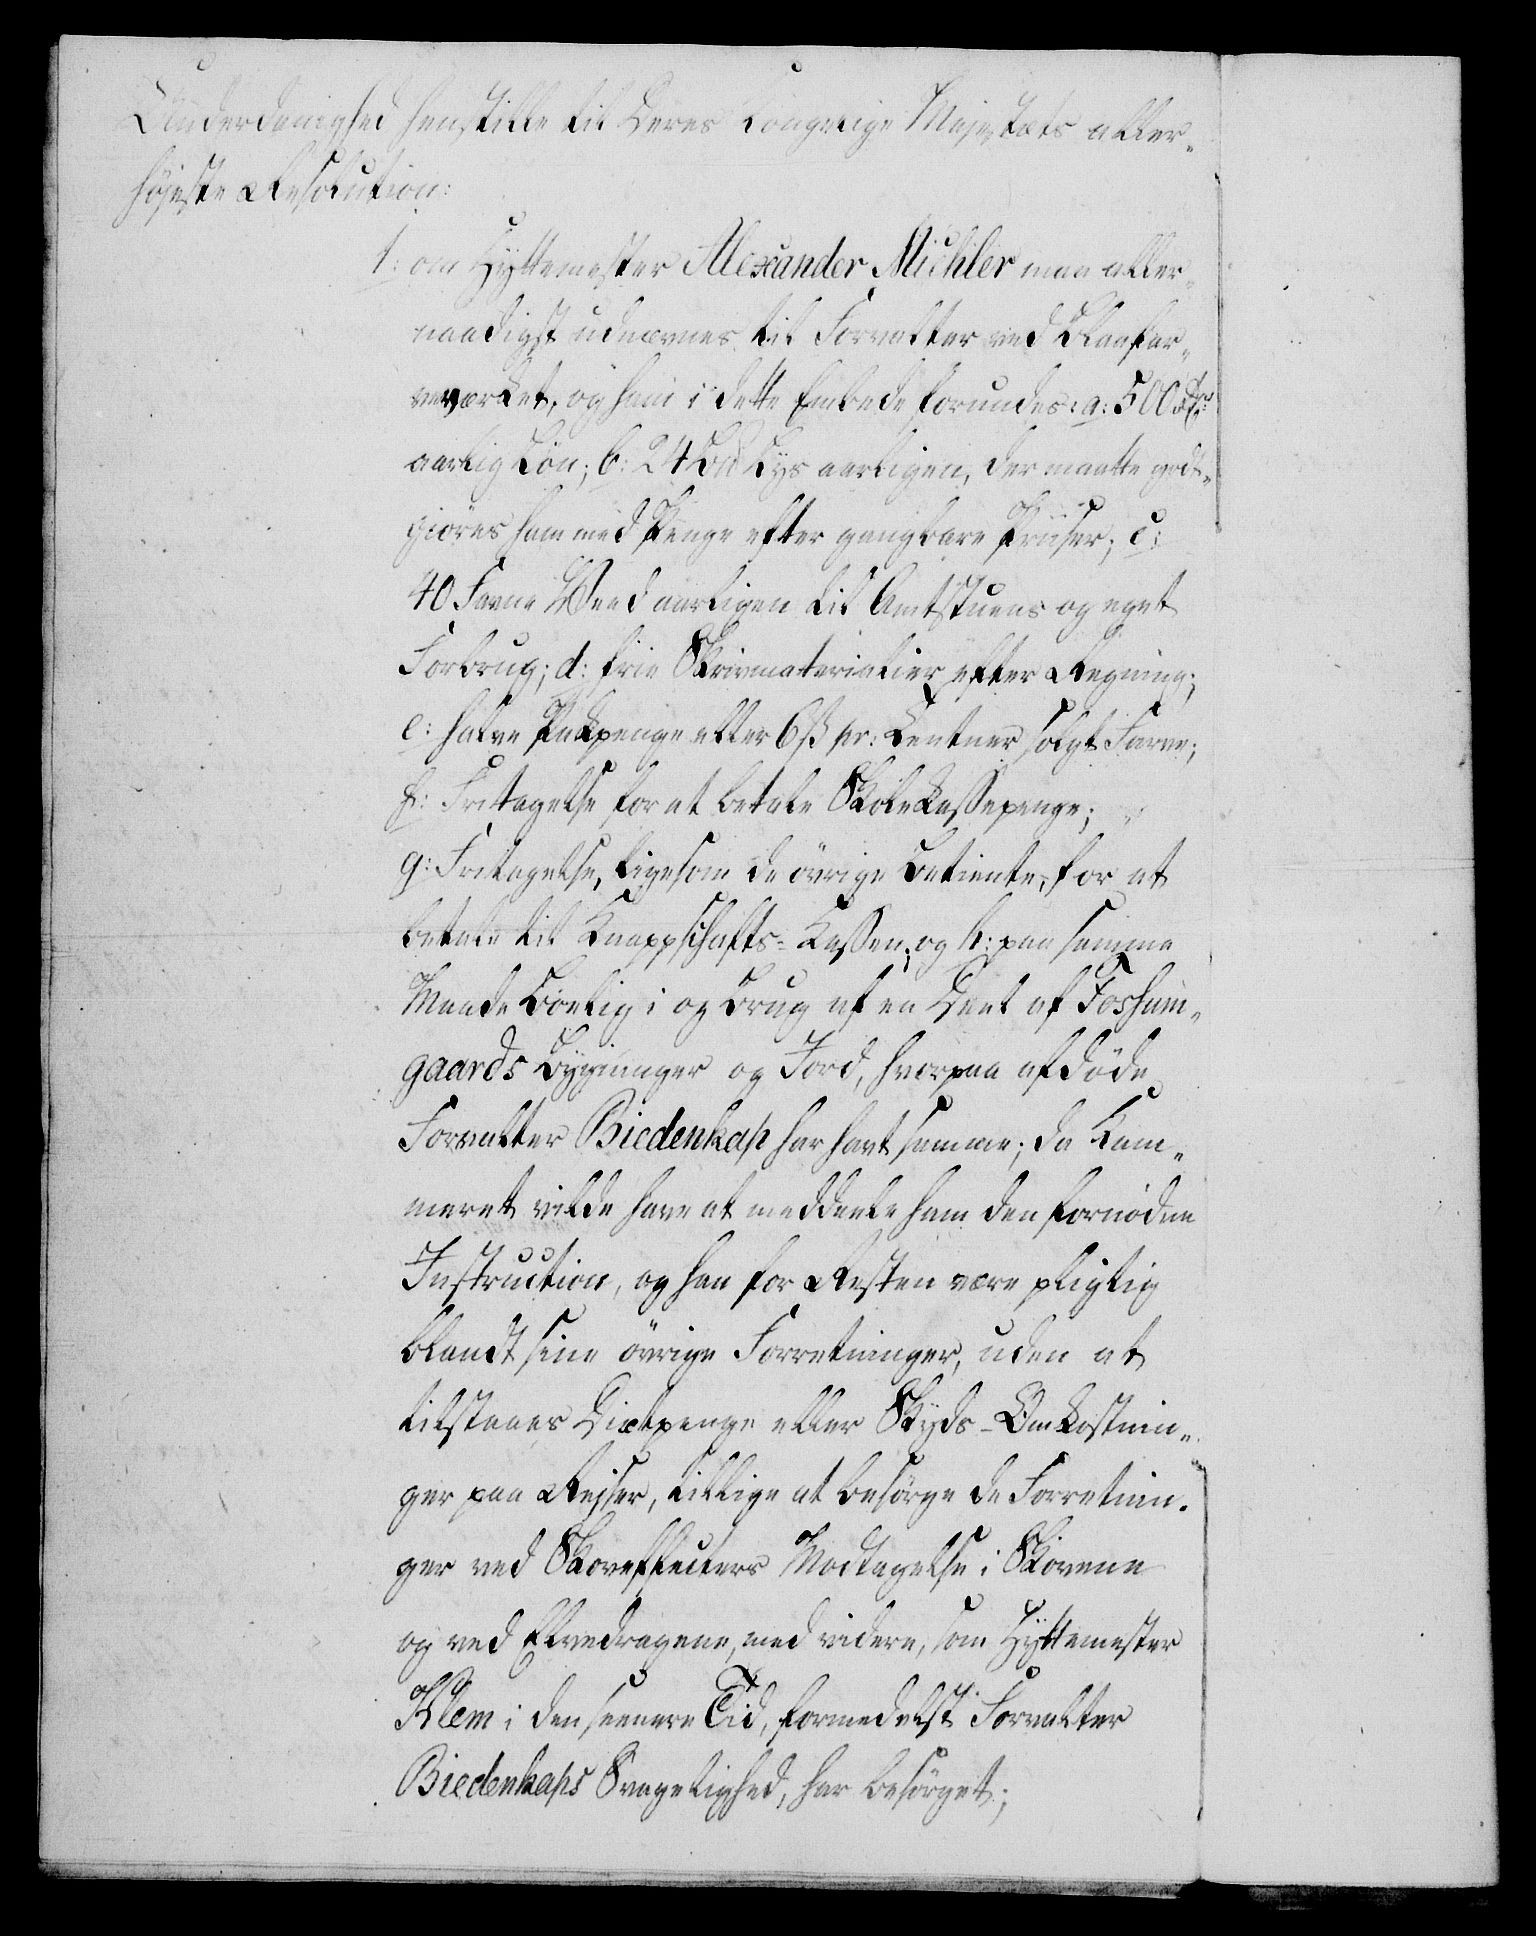 Underdanighed henstille til Deres Kongelige Majestæts aller-
højeste Resolution:
1: om Hyttemester Alexander Michler maa aller-
naadigst udnævnes til Forvalter ved Blaafar-
veværket, og ham i dette Embede forundes: a: 500 Rd
aarlig Løn; b: 24 Lys aarligen, der maatte godt-
giøres ham med Penge efter gangbare Priiser; c:
40 Favne Veed aarligen til Amtstuens og eget
Forbrug; d: frie Skrivmaterialier efter Regning;
e: halve Pakpenge eller 6 ß pr: Centner solgt Farve;
f: Fritagelse for at betale Skolekassepenge;
g: Fritagelse, ligesom de øvrige Betiente, for at
betale til Knappschafts-Kassen; og h: paa samme
Maade Boelig i og Brug af en Deel af Fossum-
gaards Bygninger og Jord, hvorpaa afdøde
Forvalter Biedenkap har havt samme; da Kam-
meret vilde have at meddeele ham den fornødne
Instruction, og han for Resten være pligtig
blandt sine øvrige Forretninger, uden at
tilstaaes Diætpenge eller Skyds-Omkostnin-
ger paa Rejser, tillige at besørge de Forretnin-
ger ved Skoveffecters Modtagelse i Skovene
og ved Elvedragene, med videre, som Hyttemester
Klem i den seenere Tid, formedelst Forvalter
Biedenkaps Svagelighed, har besørget;